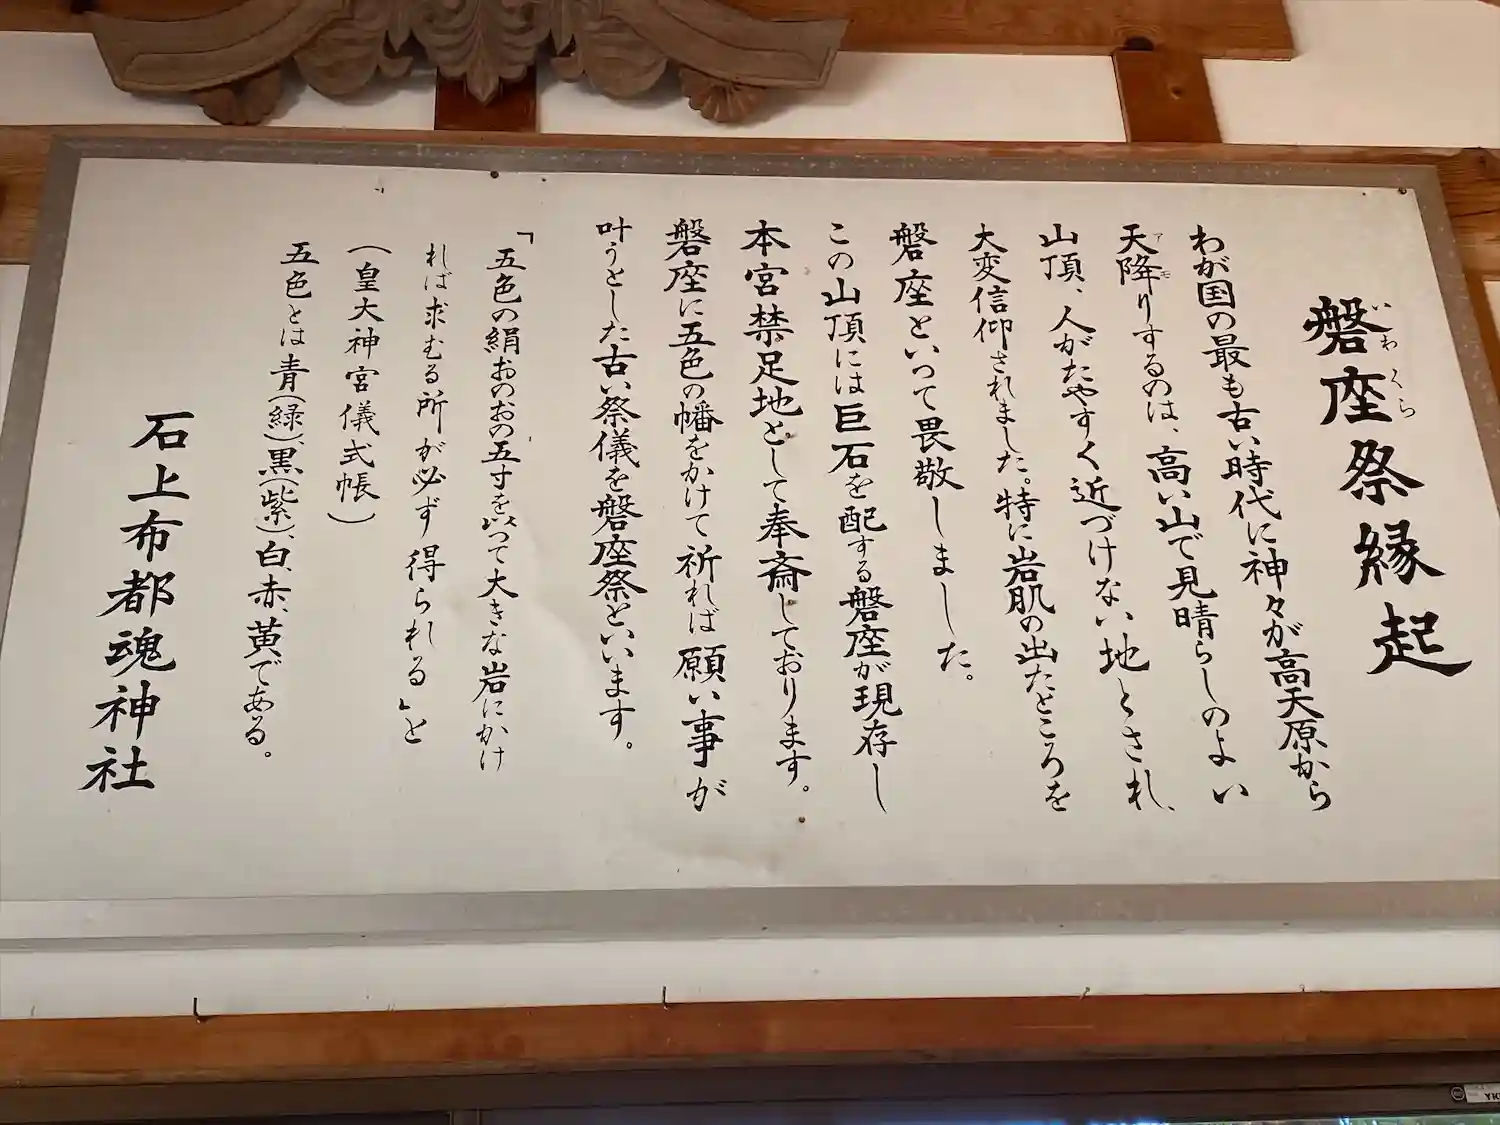 磐座祭縁起
いわくら
わが国の最も古い時代に神々が高天原から
天降りするのは、高い山で見晴らしのよい
アモ
山頂、人がたやすく近づけない地とされ、
大変信仰されました。特に岩肌の出たところを
磐座といって畏敬しました。
この山頂には巨石を配する磐座が現存し
本宮禁足地として奉斎しております。
磐座に五色の幡をかけて祈れば願い事が
叶うとした古い祭儀を磐座祭といいます。
「五色の絹おのおの五寸を以つて大きな岩にかけ
れば求むる所が必ず得られる」と
(皇大神宮儀式帳)
五色とは青(緑)、黒(紫)、白、赤、黄である。
石上布都魂神社